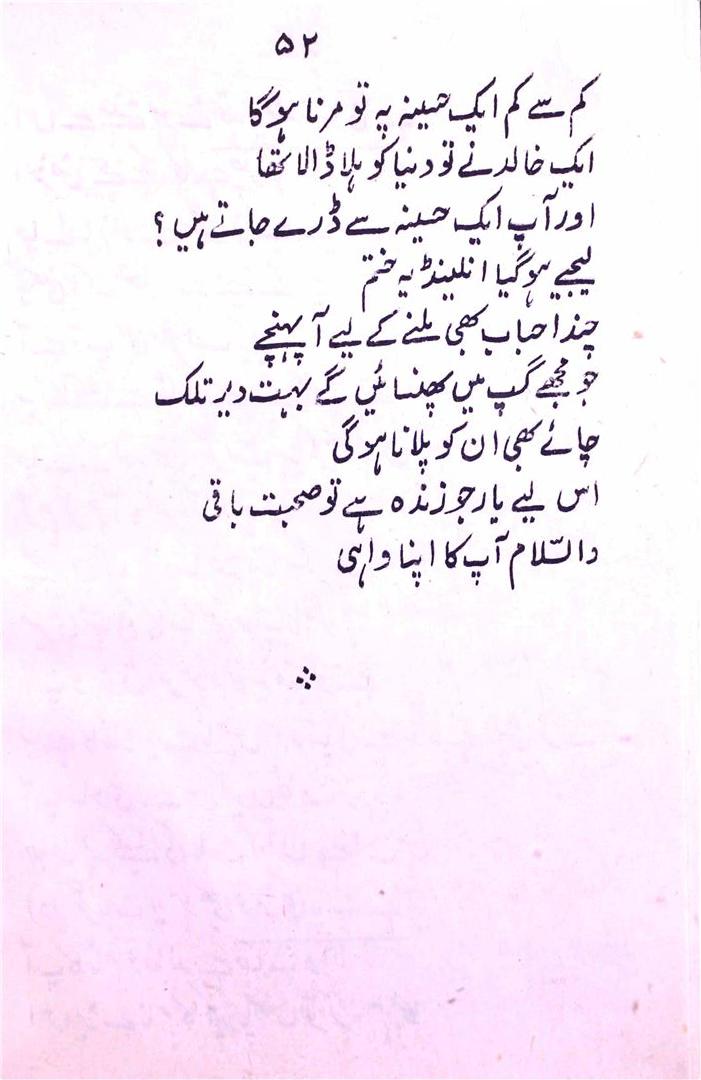 ۵۲
کم سے کم ایک حسینہ پہ تو مرنا ہوگا
ایک خالد نے تو دنیا کو ہلا ڈالا تھا
اور آپ ایک حسینہ سے ڈرے جاتے ہیں ؟
لیجیے ہوگیا انلینڈ یہ ختم
چند احباب بھی ملنے کے لیے آ پہنچے
جو مجھے گپ میں پھنسائیں گے بہت دیر تلک
چائے بھی ان کو پلانا ہوگی
اس لیے یار جو زندہ ہے تو صحبت باقی
والسّلام آپ کا اپنا واہی